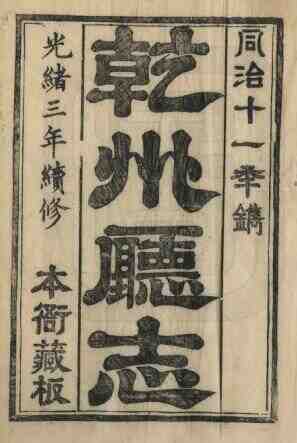 同治十一季鐫
乾州廳志
光緒三年續修
本衙藏板